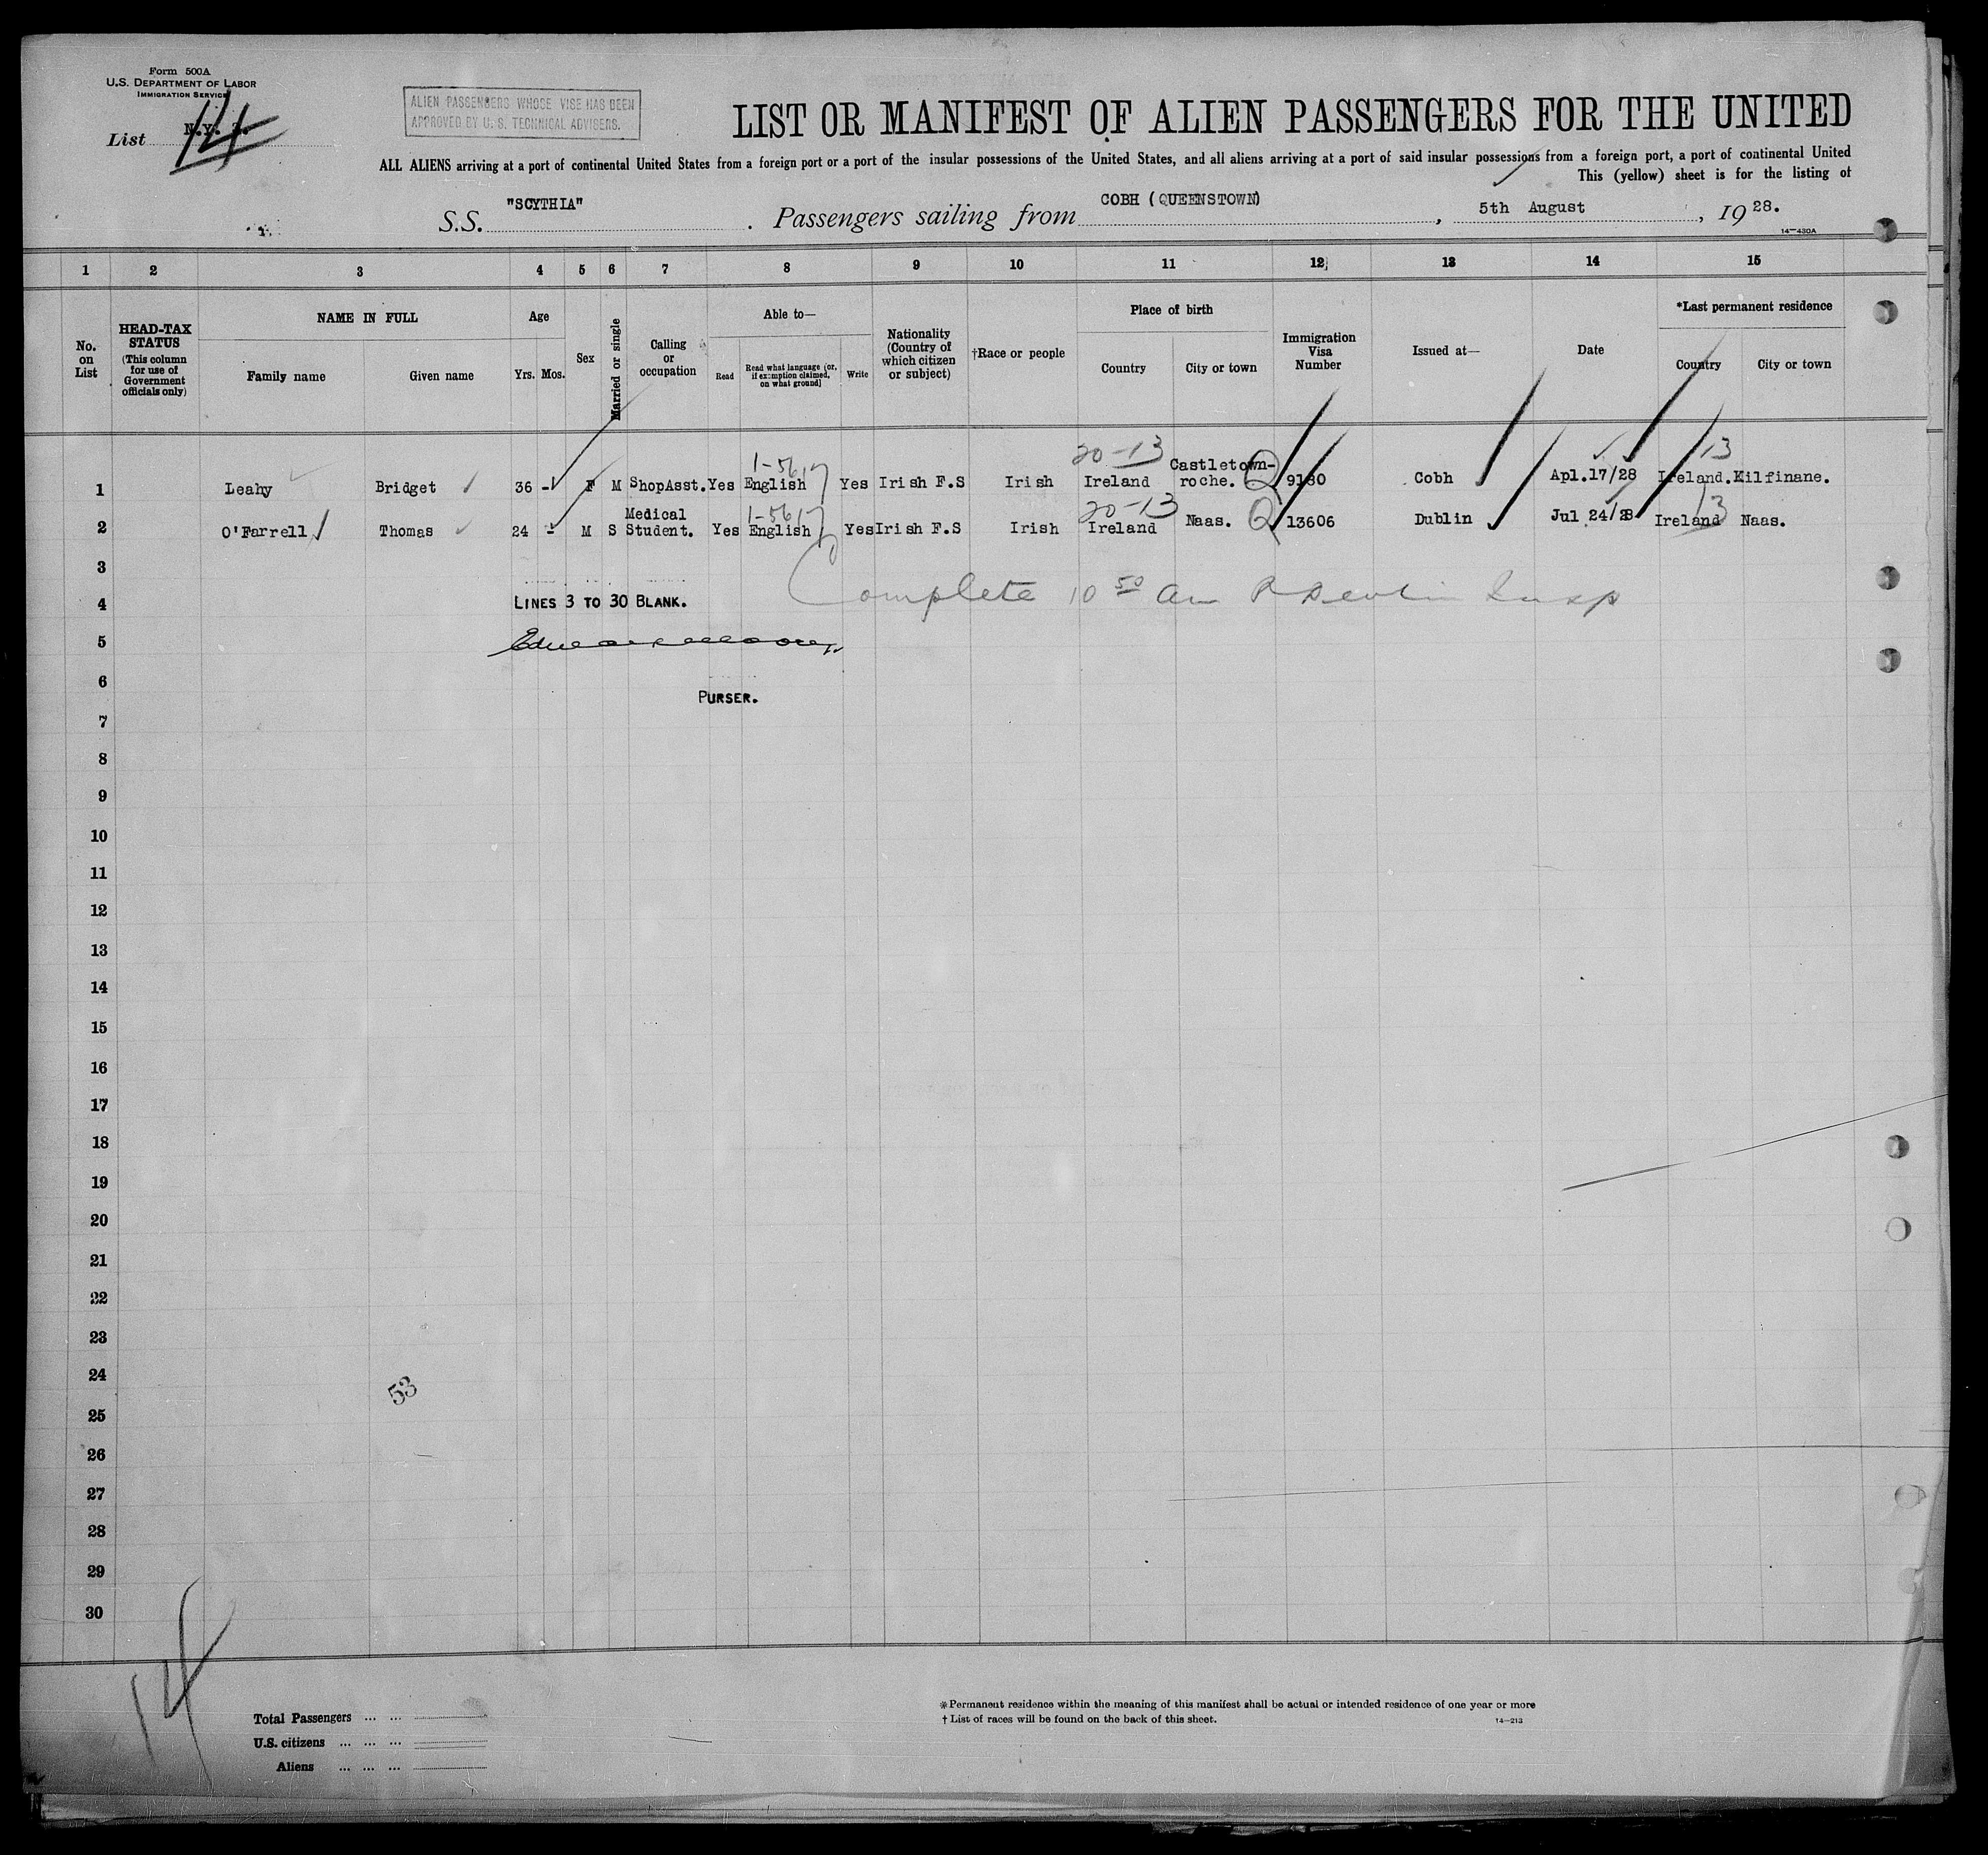 Form 500A
U.S. DEPARTMENT OF LABOR
IMMIGRATION SERVICE
List N.Y. 14
ALIEN PASSENGERS WHOSE VISE HAS BEEN
APPROVED BY U. S. TECHNICAL ADVISERS.
LIST OR MANIFEST OF ALIEN PASSENGERS FOR THE UNITED
ALL ALIENS arriving at a port of continental United States from a foreign port or a port of the insular possessions of the United States, and all aliens arriving at a port of said insular possessions from a foreign port, a port of continental United
This (yellow) sheet is for the listing of
S.S. "SCYTHIA" . Passengers sailing from COBH (QUEENSTOWN) , 5th August , 1928.
14—430A
1 2 3 4 5 6 7 8 9 10 11 12 13 14 15
No. on List
HEAD-TAX STATUS (This column for use of Government officials only)
NAME IN FULL
Family name Given name
Age
Yrs. Mos.
Sex
Married or single
Calling or occupation
Able to—
Read Read what language [or, if exemption claimed, on what ground] Write
Nationality (Country of which citizen or subject)
†Race or people
Place of birth
Country City or town
Immigration Visa Number
Issued at—
Date
*Last permanent residence
Country City or town
1-56 20-13 13
1 Leahy Bridget 36 - F M ShopAsst. Yes English Yes Irish F.S Irish Ireland Castletown-roche. Q 9180 Cobh Apl.17/28 Ireland. Kilfinane.
1-56 20-13 13
2 O'Farrell Thomas 24 - M S Medical Student. Yes English Yes Irish F.S Irish Ireland Naas. Q 13606 Dublin Jul 24/28 Ireland Naas.
3
4 LINES 3 TO 30 BLANK. Complete 10 50 am Insp
5
6
PURSER.
7
8
9
10
11
12
13
14
15
16
17
18
19
20
21
22
23
24
53
25
26
27
28
29
30
14
Total Passengers ... ...
U.S. citizens ... ... ...
Aliens ... ... ...
*Permanent residence within the meaning of this manifest shall be actual or intended residence of one year or more
†List of races will be found on the back of this sheet. 14—213